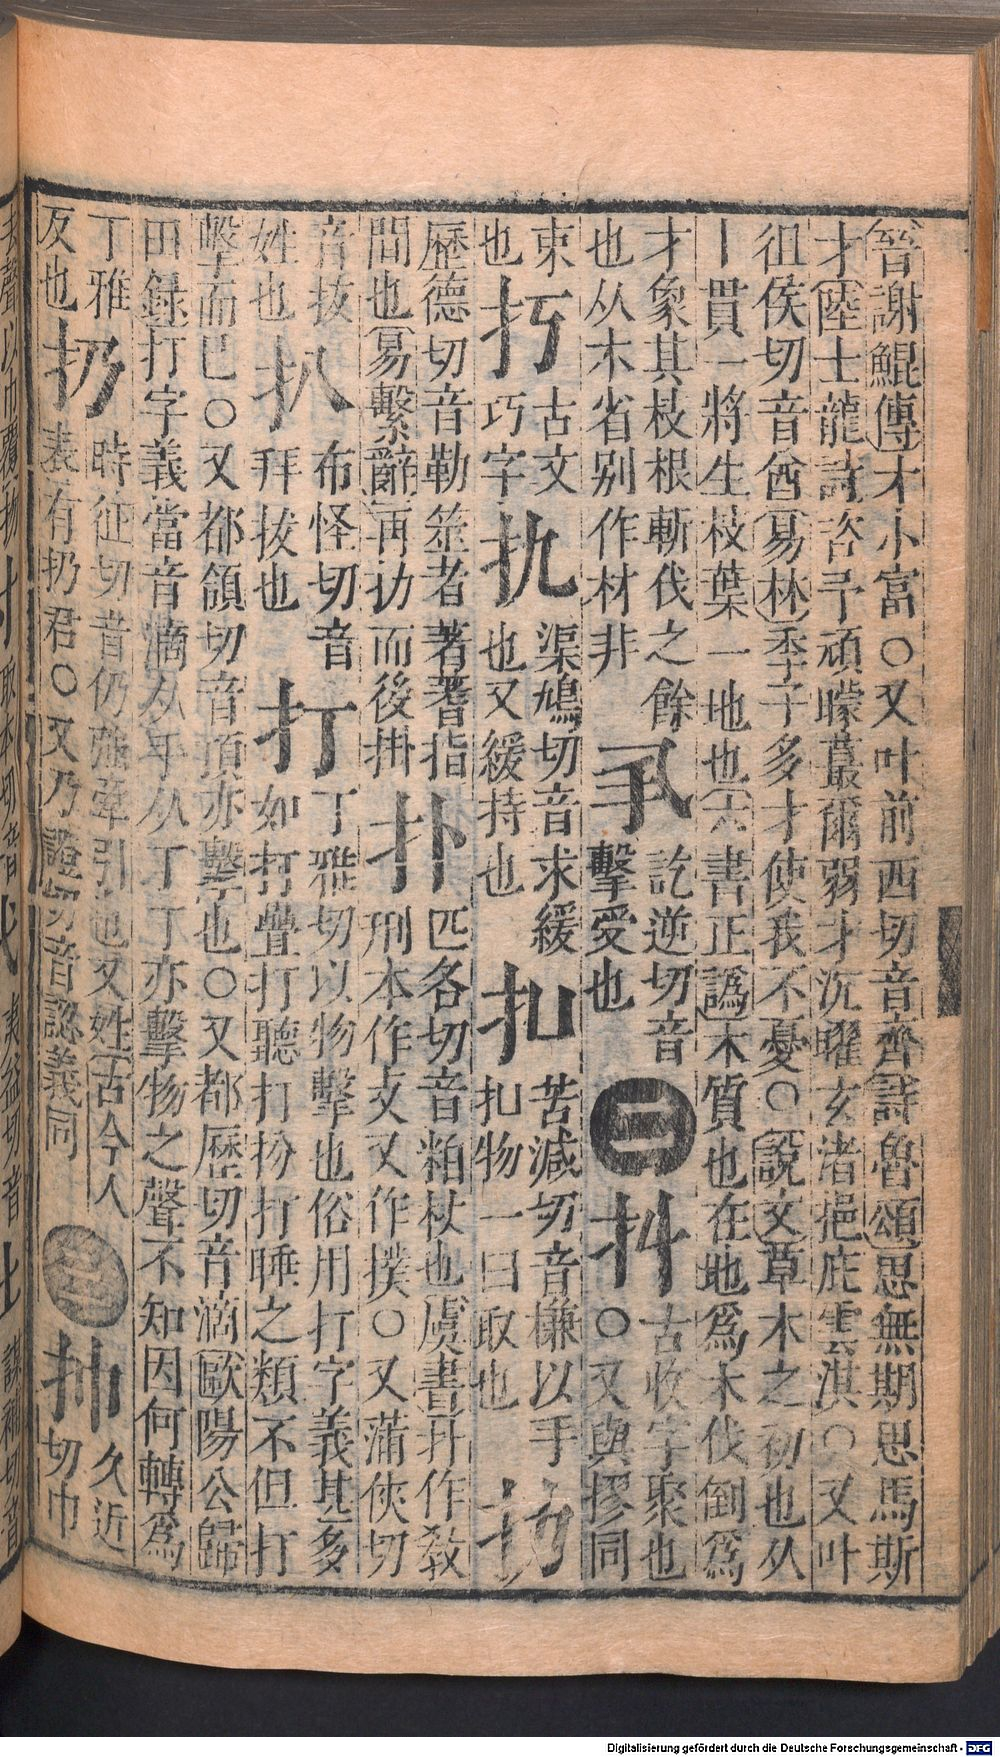 晉謝鯤傳才小富○又叶前西切音齊詩魯頌思無期思馬斯
才陸士龍詩咨予頑曚蕞爾弱才沉曜玄渚挹庇雲淇○又叶
徂侯切音酋易林季子多才使我不憂○說文草木之初也从
丨貫一將生枝葉一地也六書正譌木質也在地爲木伐倒爲
才象其枝根斬伐之餘
也从木省别作材非
丮
訖逆切音
擊爰也
二
抖
古收字聚也
○又與摎同
束
也
古文
巧字
扏
渠鳩切音求緩
也又緩持也
苦減切音槏以手
物一曰取也
扐
歷德切音勒筮者著蓍指
間也易繫辭再扐而後掛
扑
匹各切音粕杖也虞書扑作教
刑本作攴又作撲○又蒲俠切
音拔
姓也
扒
布怪切音
拜拔也
打
丁雅切以物擊也俗用打字義甚多
如打疊打聽打扮打睡之類不但打
擊而已○又都領切音頂亦擊也○又都歷切音滴歐陽公歸
田録打字義當音滴从手从丁丁亦擊物之聲不知因何轉爲
丁雅
反也
扔
時征切昔仍強牽引也又姓古今人
表有扔君○又乃證切音認義同
三
久近
切巾
Digitalisierung gefördert durch die Deutsche Forschungsgemeinschaft - DFG